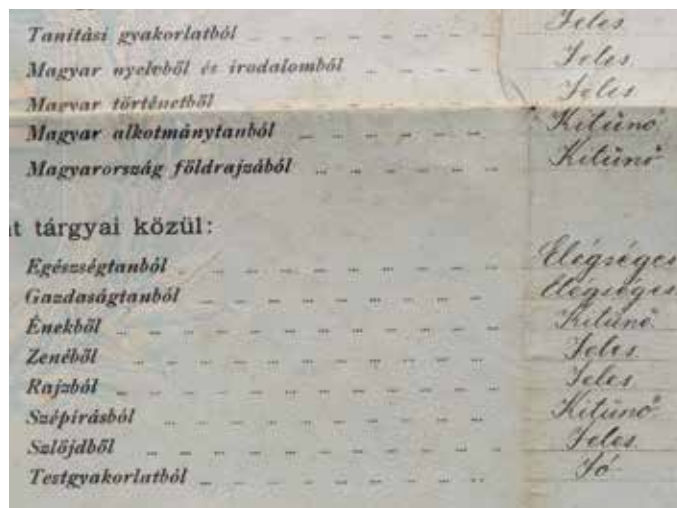 Tanítási gyakorlatból Jeles
Magyar nyelvből és irodalomból Jeles
Magyar történetből Jeles
Magyar alkotmánytanból Kitünő
Magyarország földrajzából Kitünő
t tárgyai közül:
Egészségtanból Elégséges
Gazdaságtanból Elégséges
Énekből Kitünő
Zenéből Jeles
Rajzból Jeles
Szépírásból Kitünő
Szlöjdből Jeles
Testgyakorlatból Jó